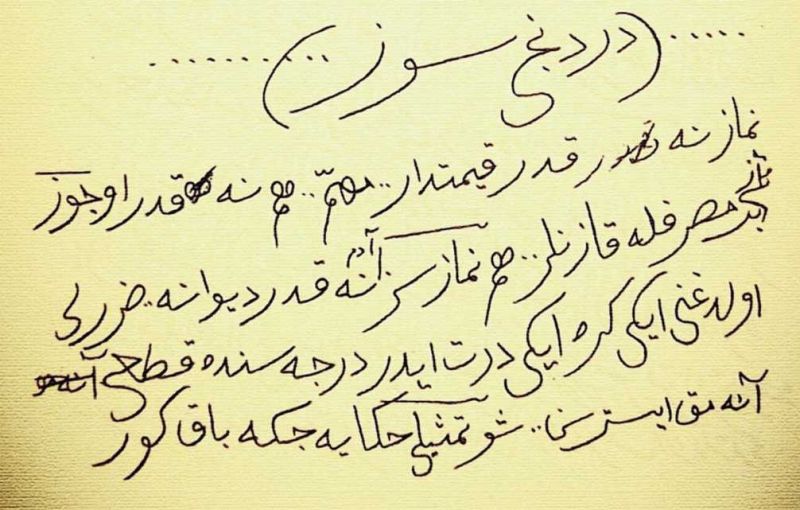 ..... (دردنجی سوز) ...........
نماز نه قدر قیمتدار.. مهمّ.. هم نه قدر اوجوز
بر مصرفله قازنلر.. هم نمازسز آدم نه قدر دیوانه.. ضررلی
اولدغنی ایکی کره ایکی درت ایدر درجه سنده قطعی
آکله مق ایسترسڭ.. شو تمثیلی حکایه جکه باق کور